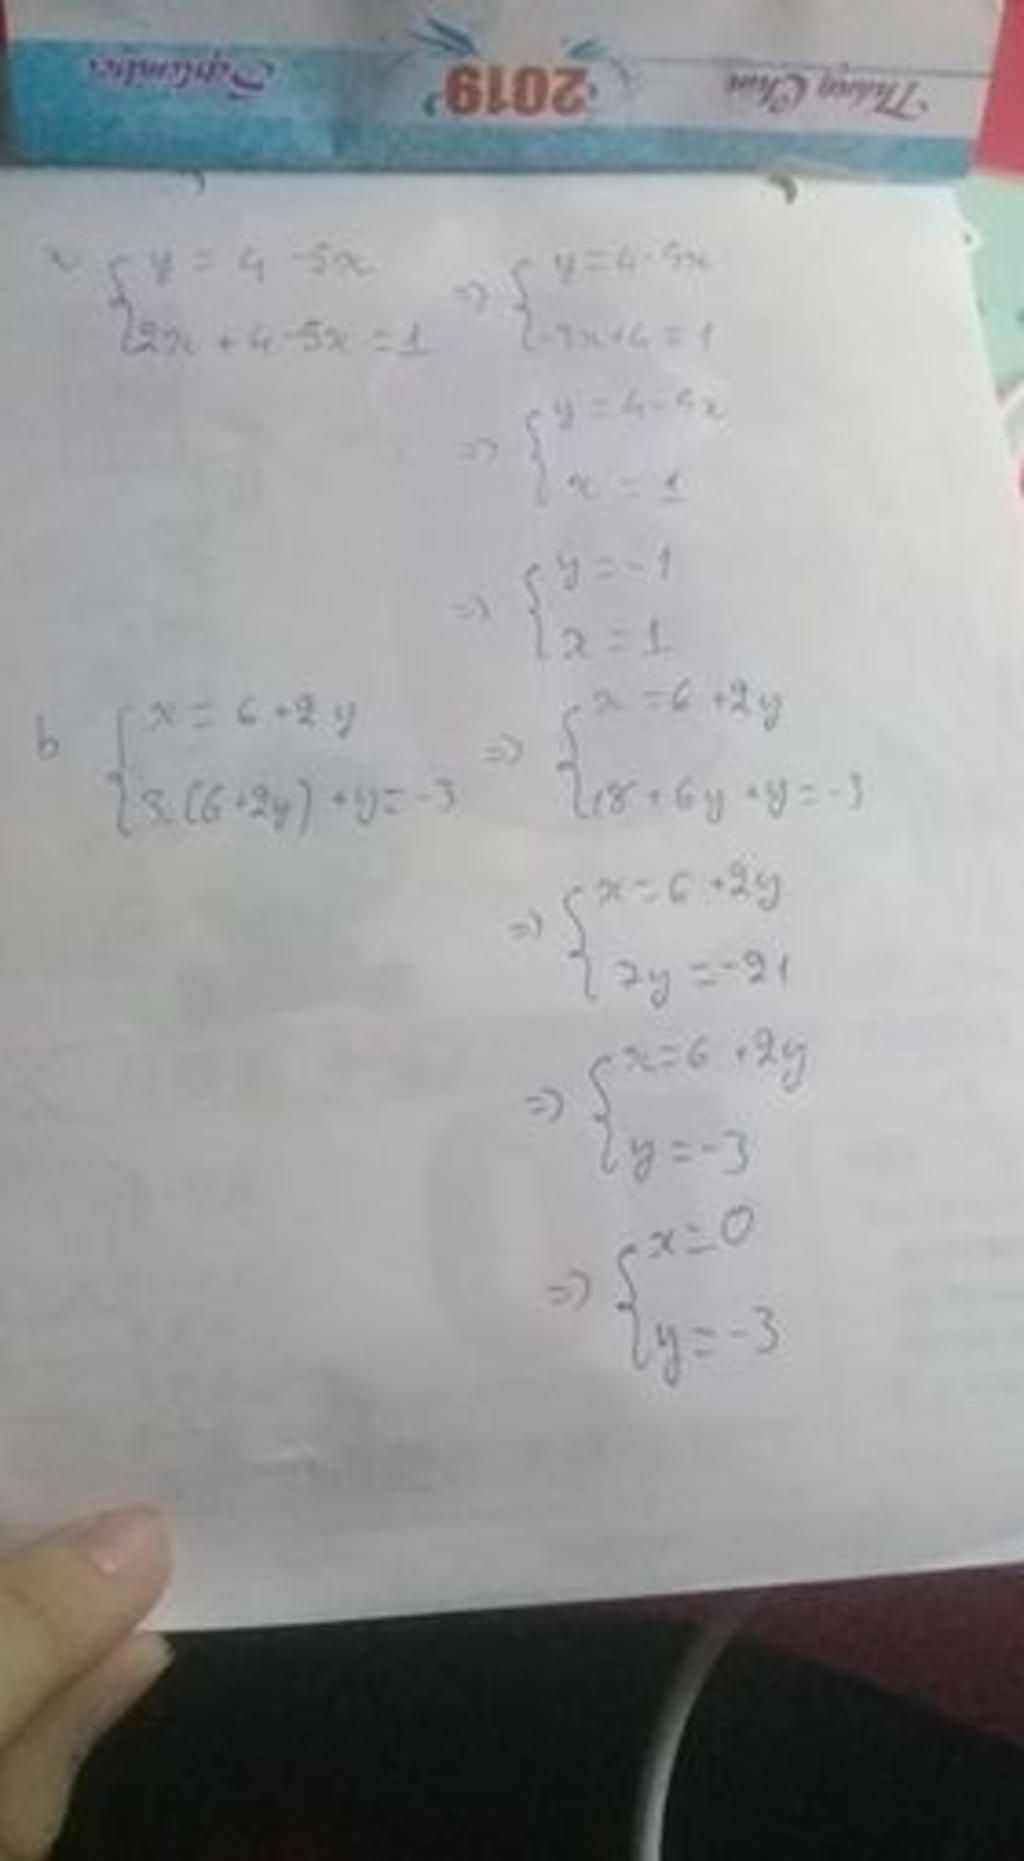 Tháng Chín 2019 September
{ y = 4 - 5x => { y = 4 - 5x
{ 2x + 4 - 5x = 1 { -3x + 4 = 1
=> { y = 4 - 5x
{ x = 1
=> { y = -1
{ x = 1
b { x = 6 + 2y => { x = 6 + 2y
{ 3.(6 + 2y) + y = -3 { 18 + 6y + y = -3
=> { x = 6 + 2y
{ 7y = -21
=> { x = 6 + 2y
{ y = -3
=> { x = 0
{ y = -3